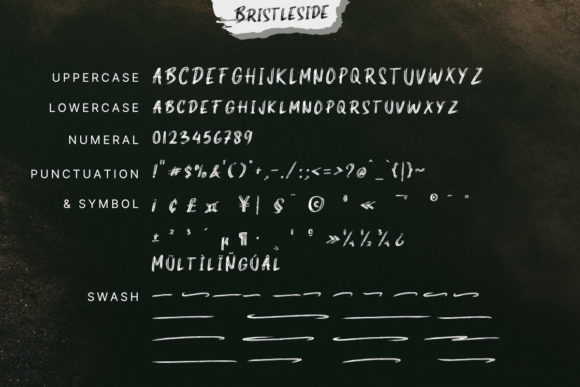 BRISTLESIDE
UPPERCASE ABCDEFGHIJKLMNOPQRSTUVWXYZ
LOWERCASE ABCDEFGHIJKLMNOPQRSTUVWXYZ
NUMERAL 0123456789
PUNCTUATION !"#$%&'()*+,-./:;<=>?@^_`{|}~
& SYMBOL ¡ ¢ £ ¤ ¥ | § ¨ © ª « ¯ ® ¯ °
± ² ³ ´ µ ¶ · ¸ ¹ º » ¼ ½ ¾ ¿
MÜLTÌLÍÑGÚÂL
SWASH